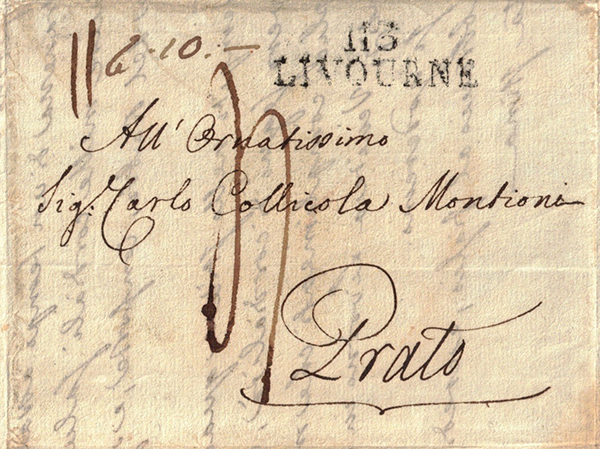 6.10.—
113
LIVOURNE
All' Ornatissimo
Sig.r Carlo Collicola Montioni
Prato